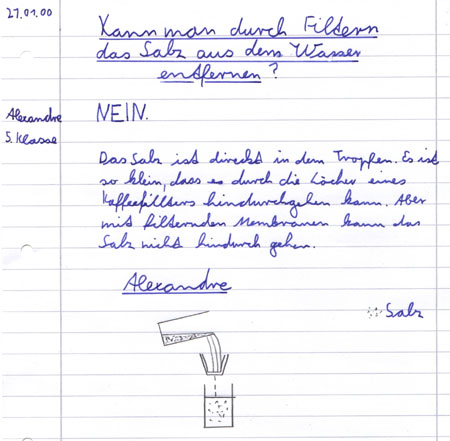 27.01.00
Kann man durch Filtern
das Salz aus dem Wasser
entfernen?
Alexandre
5. Klasse
NEIN.
Das Salz ist direkt in dem Tropfen. Es ist
so klein, dass es durch die Löcher eines
Kaffeefilters hindurchgehen kann. Aber
mit filternden Membranen kann das
Salz nicht hindurch gehen.
Alexandre
Salz